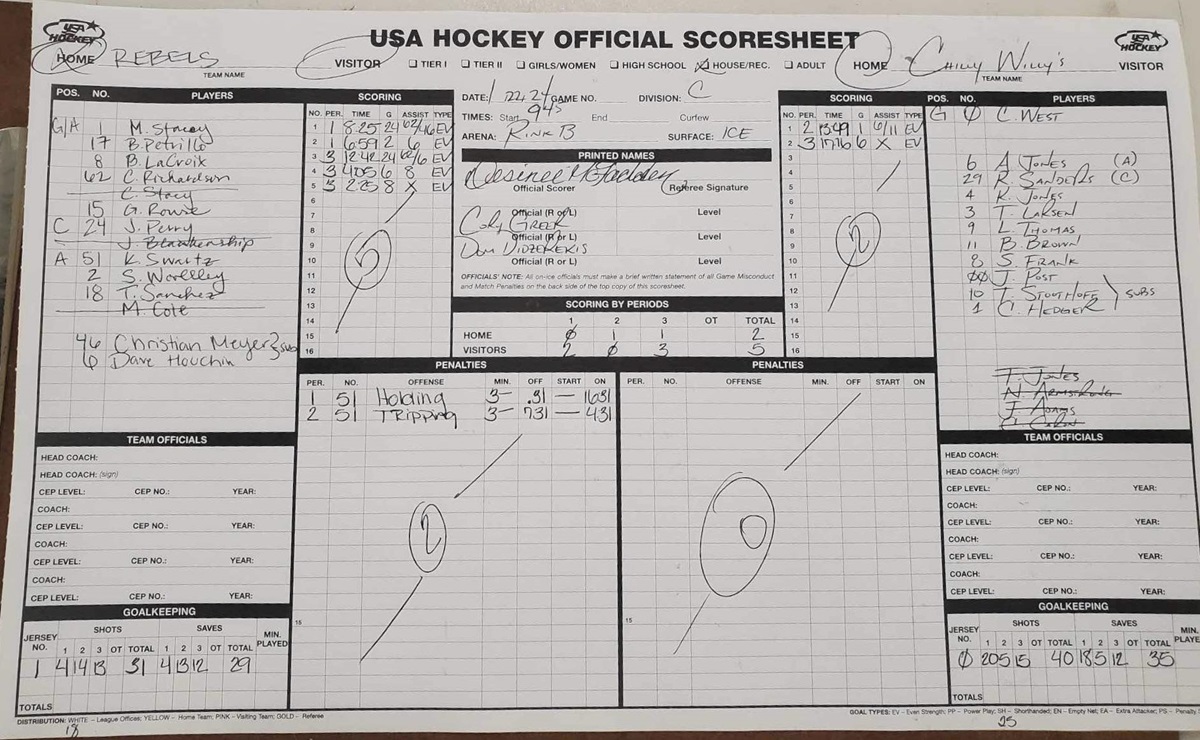 USA HOCKEY OFFICIAL SCORESHEET
USA HOCKEY
USA HOCKEY
HOME REBELS VISITOR
TEAM NAME
☐ TIER I ☐ TIER II ☐ GIRLS/WOMEN ☐ HIGH SCHOOL ☒ HOUSE/REC. ☐ ADULT
HOME Chilly Willy's VISITOR
TEAM NAME
POS. NO. PLAYERS
G/A 1 M. Stacey
17 B. Petrillo
8 B. LaCroix
62 C. Richardson
C. Stacy
15 G. Rowe
C 24 J. Perry
J. Blankenship
A 51 K. Swartz
2 S. Worelley
18 T. Sanchez
M. Cote
46 Christian Meyer
6 Dave Houchin
sub
SCORING
NO. PER. TIME G ASSIST TYPE
1 1 8:25 24 62/46 EV
2 1 659 2 6 EV
3 3 12:42 24 62/6 EV
4 3 405 6 8 EV
5 3 225 8 X EV
6
7
8
9
10
11
12
13
14
15
16
5
DATE: 1/22/24 GAME NO. DIVISION: C
TIMES: Start 945 End Curfew
ARENA: RINK B SURFACE: ICE
PRINTED NAMES
Official Scorer Referee Signature
Cory Greer
Official (R or L) Level
Official (R or L) Level
Official (R or L) Level
OFFICIALS' NOTE: All on-ice officials must make a brief written statement of all Game Misconduct
and Match Penalties on the back side of the top copy of this scoresheet.
SCORING BY PERIODS
1 2 3 OT TOTAL
HOME 0 1 1 2
VISITORS 2 0 3 5
SCORING
NO. PER. TIME G ASSIST TYPE
1 2 1349 1 6/11 EV
2 3 1716 6 X EV
3
4
5
6
7
8
9
10
11
12
13
14
15
16
2
POS. NO. PLAYERS
G Ø C. WEST
6 A. JONES (A)
29 R. SANDERS (C)
4 K. JONES
3 T. LARSEN
9 L. THOMAS
11 B. BROWN
8 S. FRANK
00 J. POST
10 T. STOOTHOFF
1 C. HEDGER
SUBS
T. JONES
N. ARMSTRONG
J. ADAMS
PENALTIES
PER. NO. OFFENSE MIN. OFF START ON
1 51 Holding 3 – .31 – 1631
2 51 TRipping 3 – 731 – 431
2
15
PENALTIES
PER. NO. OFFENSE MIN. OFF START ON
0
15
TEAM OFFICIALS
HEAD COACH:
HEAD COACH: (sign)
CEP LEVEL: CEP NO.: YEAR:
COACH:
CEP LEVEL: CEP NO.: YEAR:
COACH:
CEP LEVEL: CEP NO.: YEAR:
COACH:
CEP LEVEL: CEP NO.: YEAR:
GOALKEEPING
JERSEY NO. SHOTS SAVES MIN. PLAYED
1 2 3 OT TOTAL 1 2 3 OT TOTAL
1 4 14 13 31 4 13 12 29
TOTALS
TEAM OFFICIALS
HEAD COACH:
HEAD COACH: (sign)
CEP LEVEL: CEP NO.: YEAR:
COACH:
CEP LEVEL: CEP NO.: YEAR:
COACH:
CEP LEVEL: CEP NO.: YEAR:
COACH:
CEP LEVEL: CEP NO.: YEAR:
GOALKEEPING
JERSEY NO. SHOTS SAVES MIN. PLAYE
1 2 3 OT TOTAL 1 2 3 OT TOTAL
Ø 20 5 15 40 18 5 12 35
TOTALS
DISTRIBUTION: WHITE – League Offices; YELLOW – Home Team; PINK – Visiting Team; GOLD – Referee
GOAL TYPES: EV – Even Strength; PP – Power Play; SH – Shorthanded; EN – Empty Net; EA – Extra Attacker; PS – Penalty
18
25